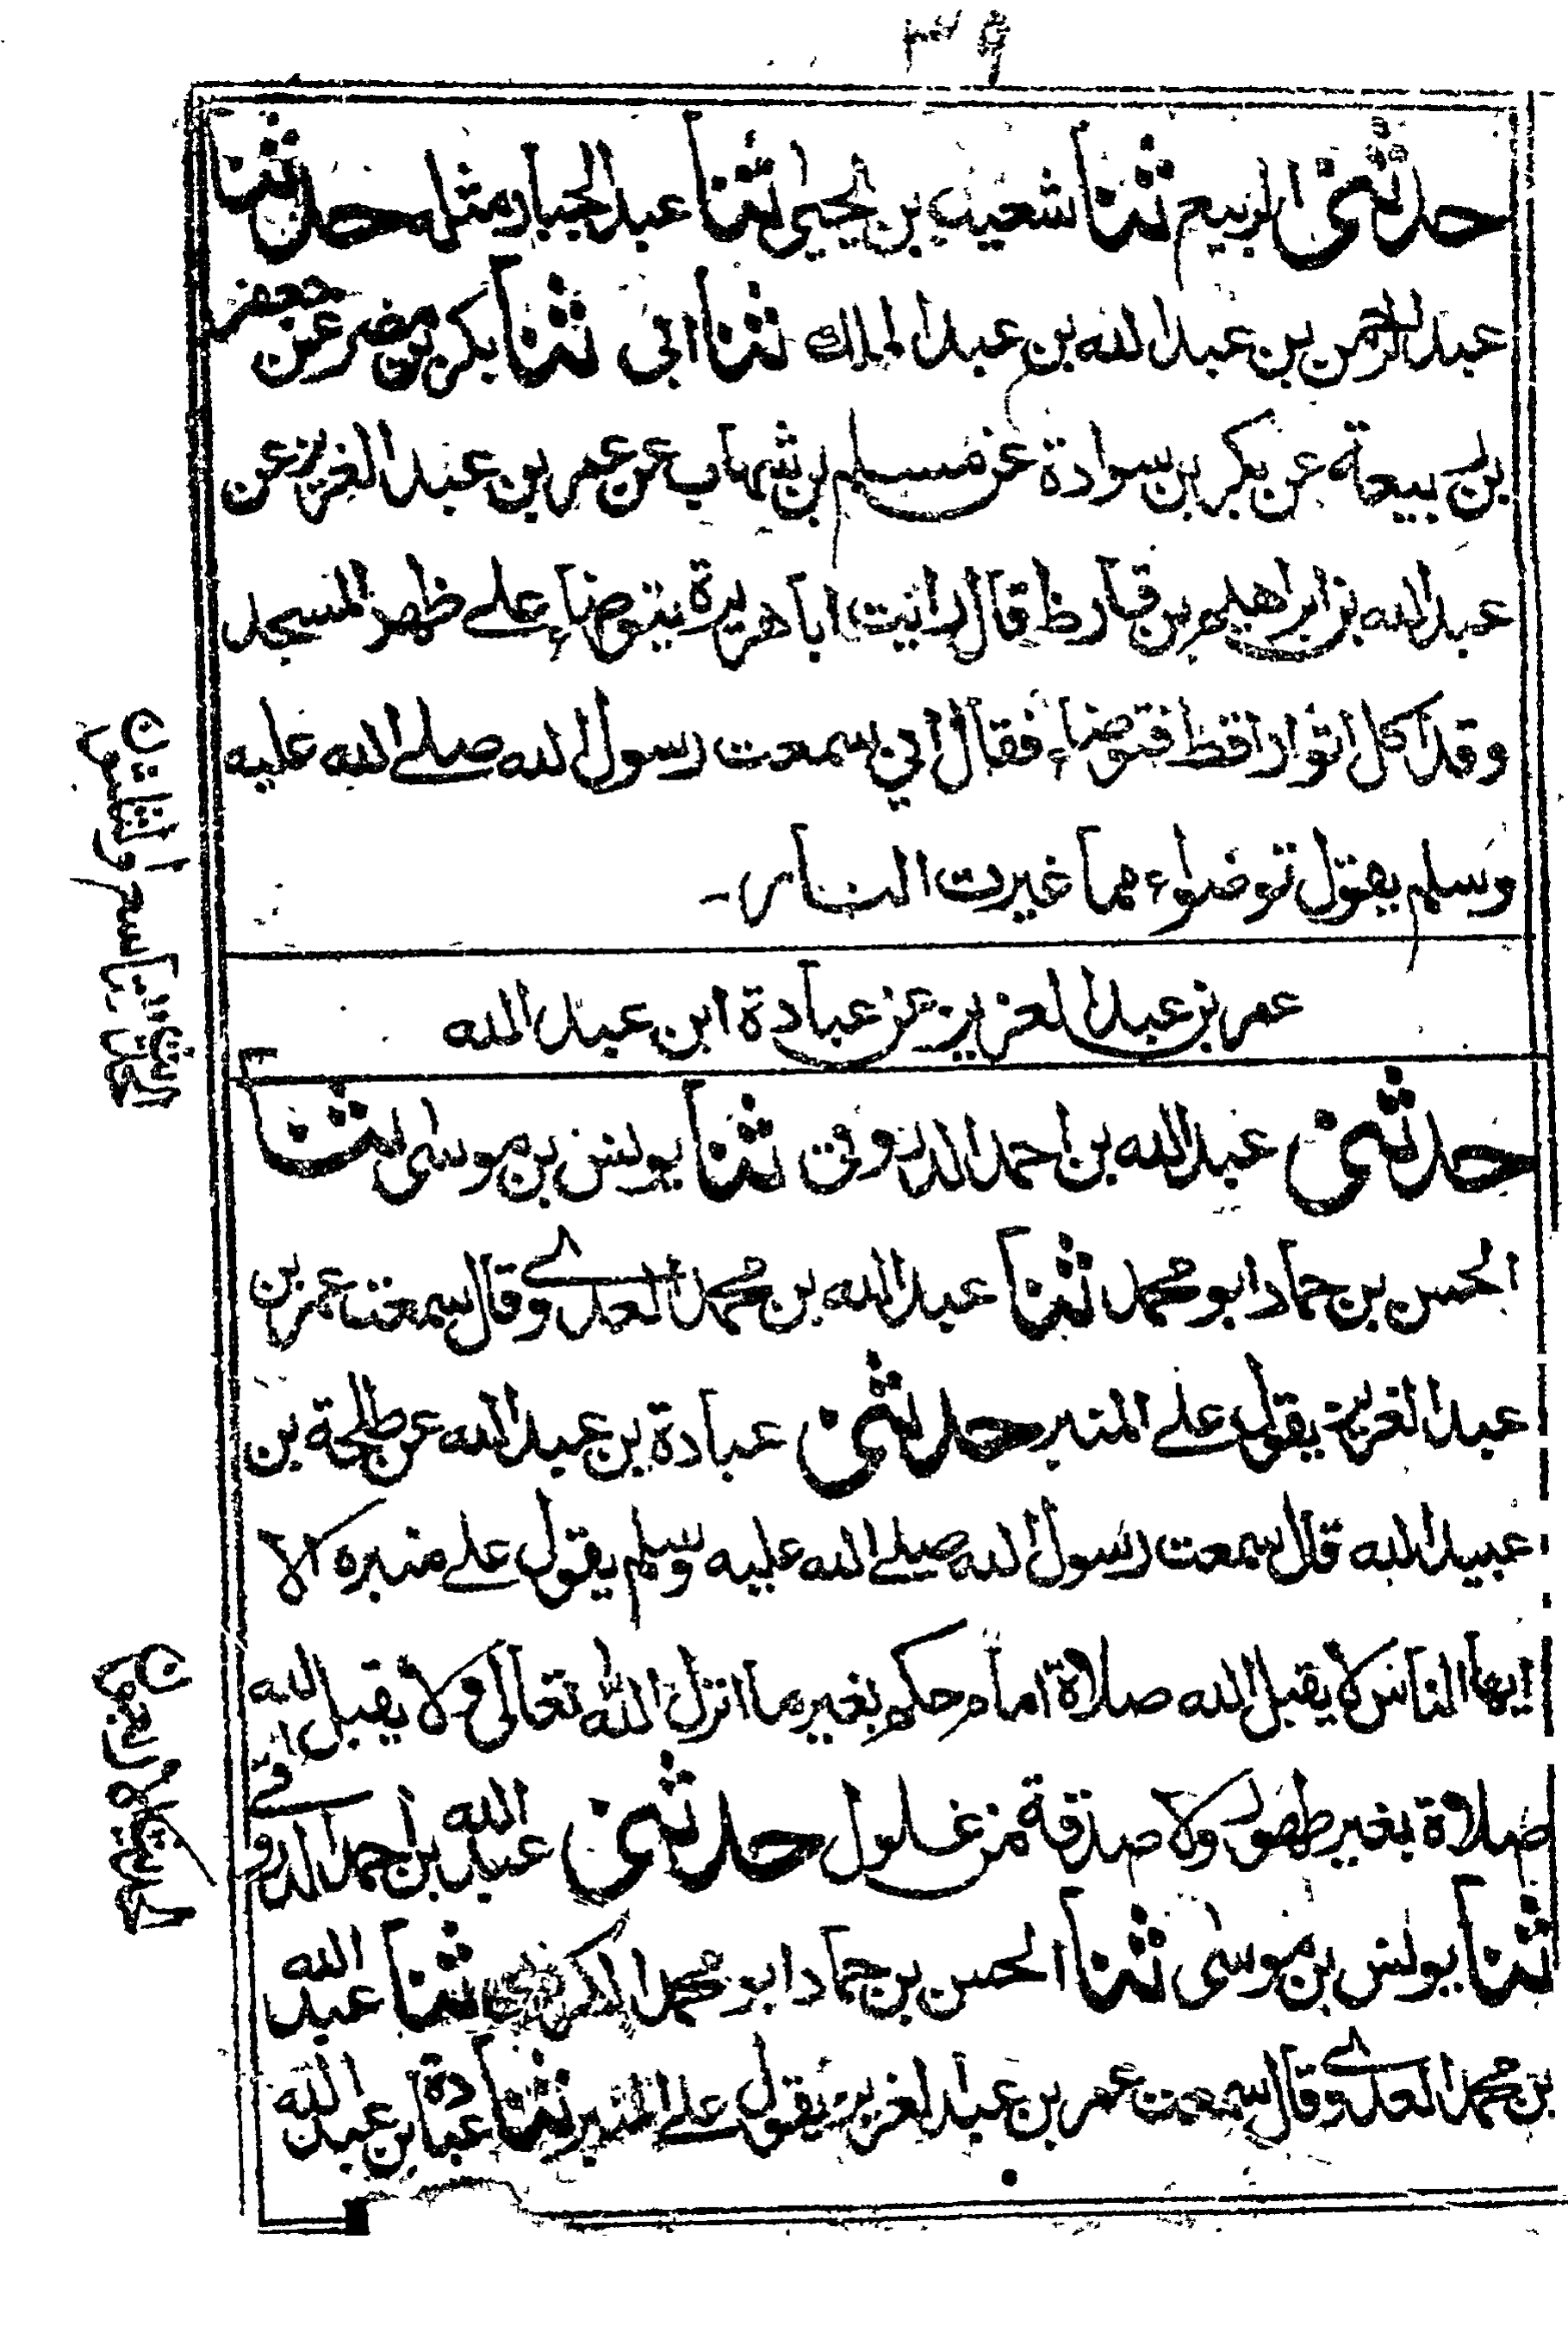 ٣٩
حدثنى الربيع ثنا شعيب بن يحيى ثنا عبد الجبار مثله حدثنا
عبد الرحمن بن عبد الله بن عبد الملك ثنا ابى ثنا بكر بن مضر عن جعفر
بن ربيعة عن بكر بن سوادة عن مسلم بن شهاب عن عمر بن عبد العزيز عن
عبد الله بن ابراهيم بن قارظ قال رايت ابا هريرة يتوضاء على ظهر المسجد
وقد اكل اثوار اقط فتوضاء فقال انى سمعت رسول الله صلے الله عليه
وسلم يقول توضواء مما غيرت النار۔
عمر بن عبد العزيز عن عبادة ابن عبد الله
حدثنى عبد الله بن احمد الدورقى ثنا يونس بن موسى ثنا
الحسن بن حماد ابو محمد ثنا عبد الله بن محمد العدوے قال سمعت عمر بن
عبد العزيز يقول علے المنبر حدثنى عبادة بن عبد الله عن طلحة بن
عبيد الله قال سمعت رسول الله صلے الله عليه وسلم يقول علے منبره الا
ايها الناس لا يقبل الله صلاة امام حكم بغير ما انزل الله تعالى ولا يقبل الله
صلاة بغير طهور ولا صدقة من غلول حدثنى عبد الله بن احمد الدورقے
ثنا يونس بن موسى ثنا الحسن بن حماد ابو محمد ثنا عبد الله
بن محمد العدوے قال سمعت عمر بن عبد العزيز يقول علے المنبر ثنا عبادة بن عبد الله
الحديث
الحديث